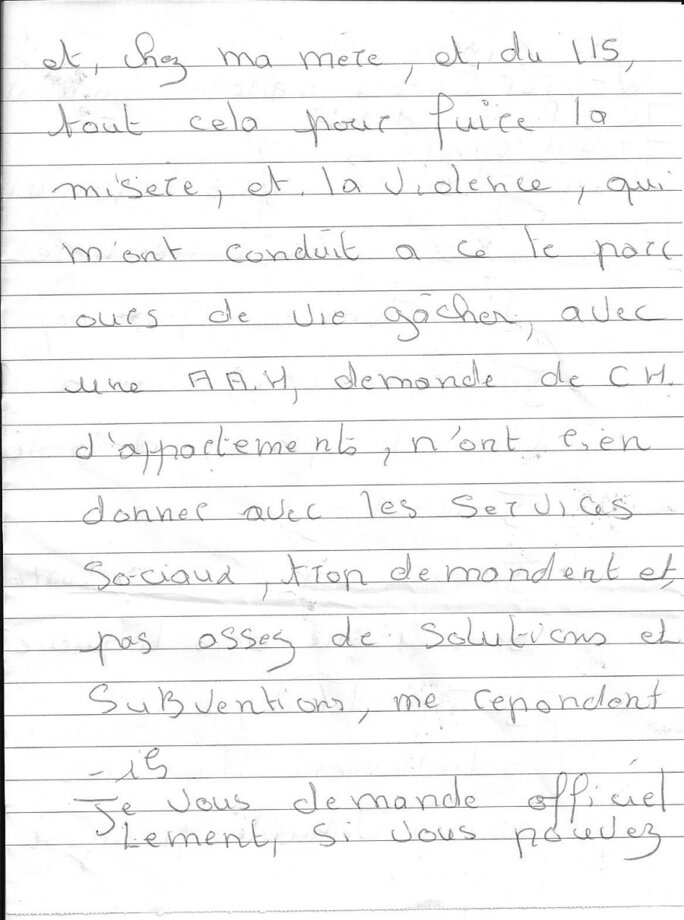 et, chez ma mère, et, du 115,
tout cela pour fuire la
misère, et. la violence, qui
m'ont conduit a ce le parc
ours de vie gâcher, avec
une A A.H, demande de C H.
d'appartements, n'ont rien
donner avec les services
Sociaux, trop demandent et,
pas assez de solutions et
SuBventions, me repondent
-ils
Je vous demande officiel
lement, si vous pouvez